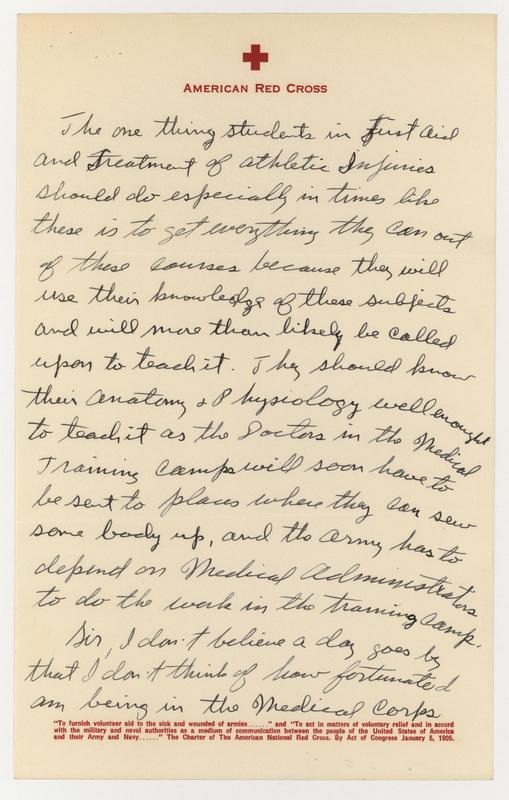 AMERICAN RED CROSS
The one thing students in First Aid
and Treatment of athletic Injuries
should do especially in times like
these is to get everything they can out
of these courses because they will
use their knowledge of these subjects
and will more than likely be called
upon to teach it. They should know
their Anatomy & Physiology well enought
to teach it as the Doctors in the Medical
Training Camps will soon have to
be sent to places where they can sew
some body up, and the army has to
depend on Medical Administrators
to do the work in the training camp.
Sir, I don't believe a day goes by
that I don't think of how fortunate I
am being in the Medical Corps
"To furnish volunteer aid to the sick and wounded of armies......" and "To act in matters of voluntary relief and in accord
with the military and naval authorities as a medium of communication between the people of the United States of America
and their Army and Navy......" The Charter of The American National Red Cross. By Act of Congress January 5, 1905.